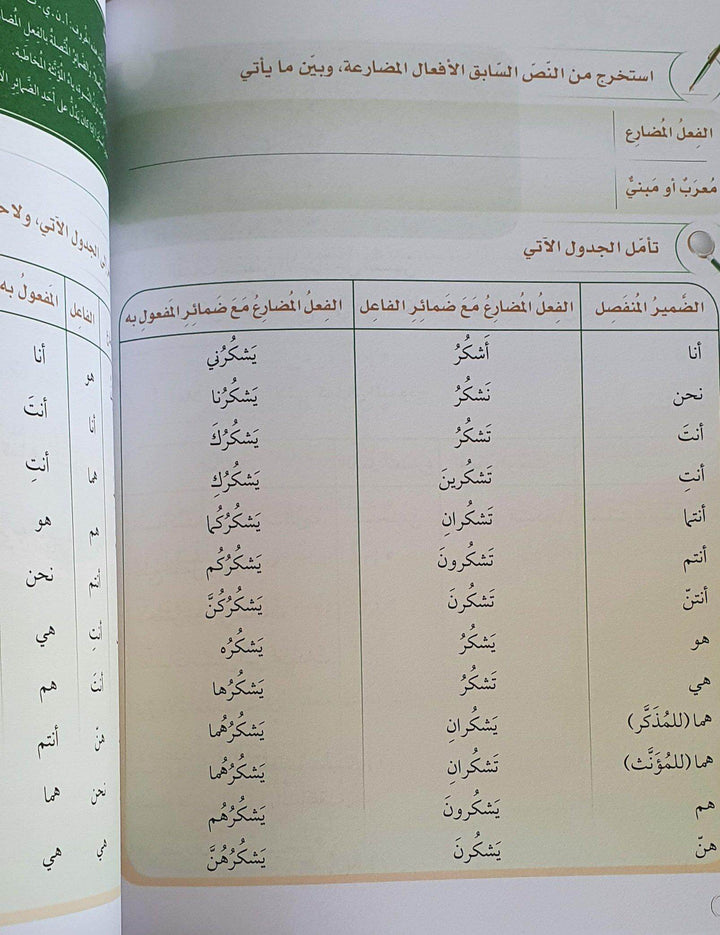 استخرج من النّصّ السّابق الأفعال المضارعة، وبيّن ما يأتي
الفِعلُ المُضارِع
مُعرَبٌ أو مَبنيٌّ
تأمّل الجدول الآتي
الضَّميرُ المُنفَصِل الفِعلُ المُضارِعُ مَعَ ضَمائِرِ الفاعل الفِعلُ المُضارِعُ مَعَ ضَمائِرِ المَفعولِ به
أنا أَشكُرُ يَشكُرُني
نحن نَشكُرُ يَشكُرُنا
أنتَ تَشكُرُ يَشكُرُكَ
أنتِ تَشكُرينَ يَشكُرُكِ
أنتما تَشكُرانِ يَشكُرُكُما
أنتم تَشكُرونَ يَشكُرُكُم
أنتنّ تَشكُرنَ يَشكُرُكُنَّ
هو يَشكُرُ يَشكُرُه
هي تَشكُرُ يَشكُرُها
هما (للمُذَكَّر) يَشكُرانِ يَشكُرُهُما
هما (للمُؤَنَّث) تَشكُرانِ يَشكُرُهُما
هم يَشكُرونَ يَشكُرُهُم
هنّ يَشكُرنَ يَشكُرُهُنَّ
الجدول الآتي،
الفاعِل المَفعولُ به
هو أنا
أنا أنتَ
هما أنتِ
هم هو
أنتم نحن
أنتِ هي
أنتَ هم
هنّ أنتم
نحن هما
هي هي